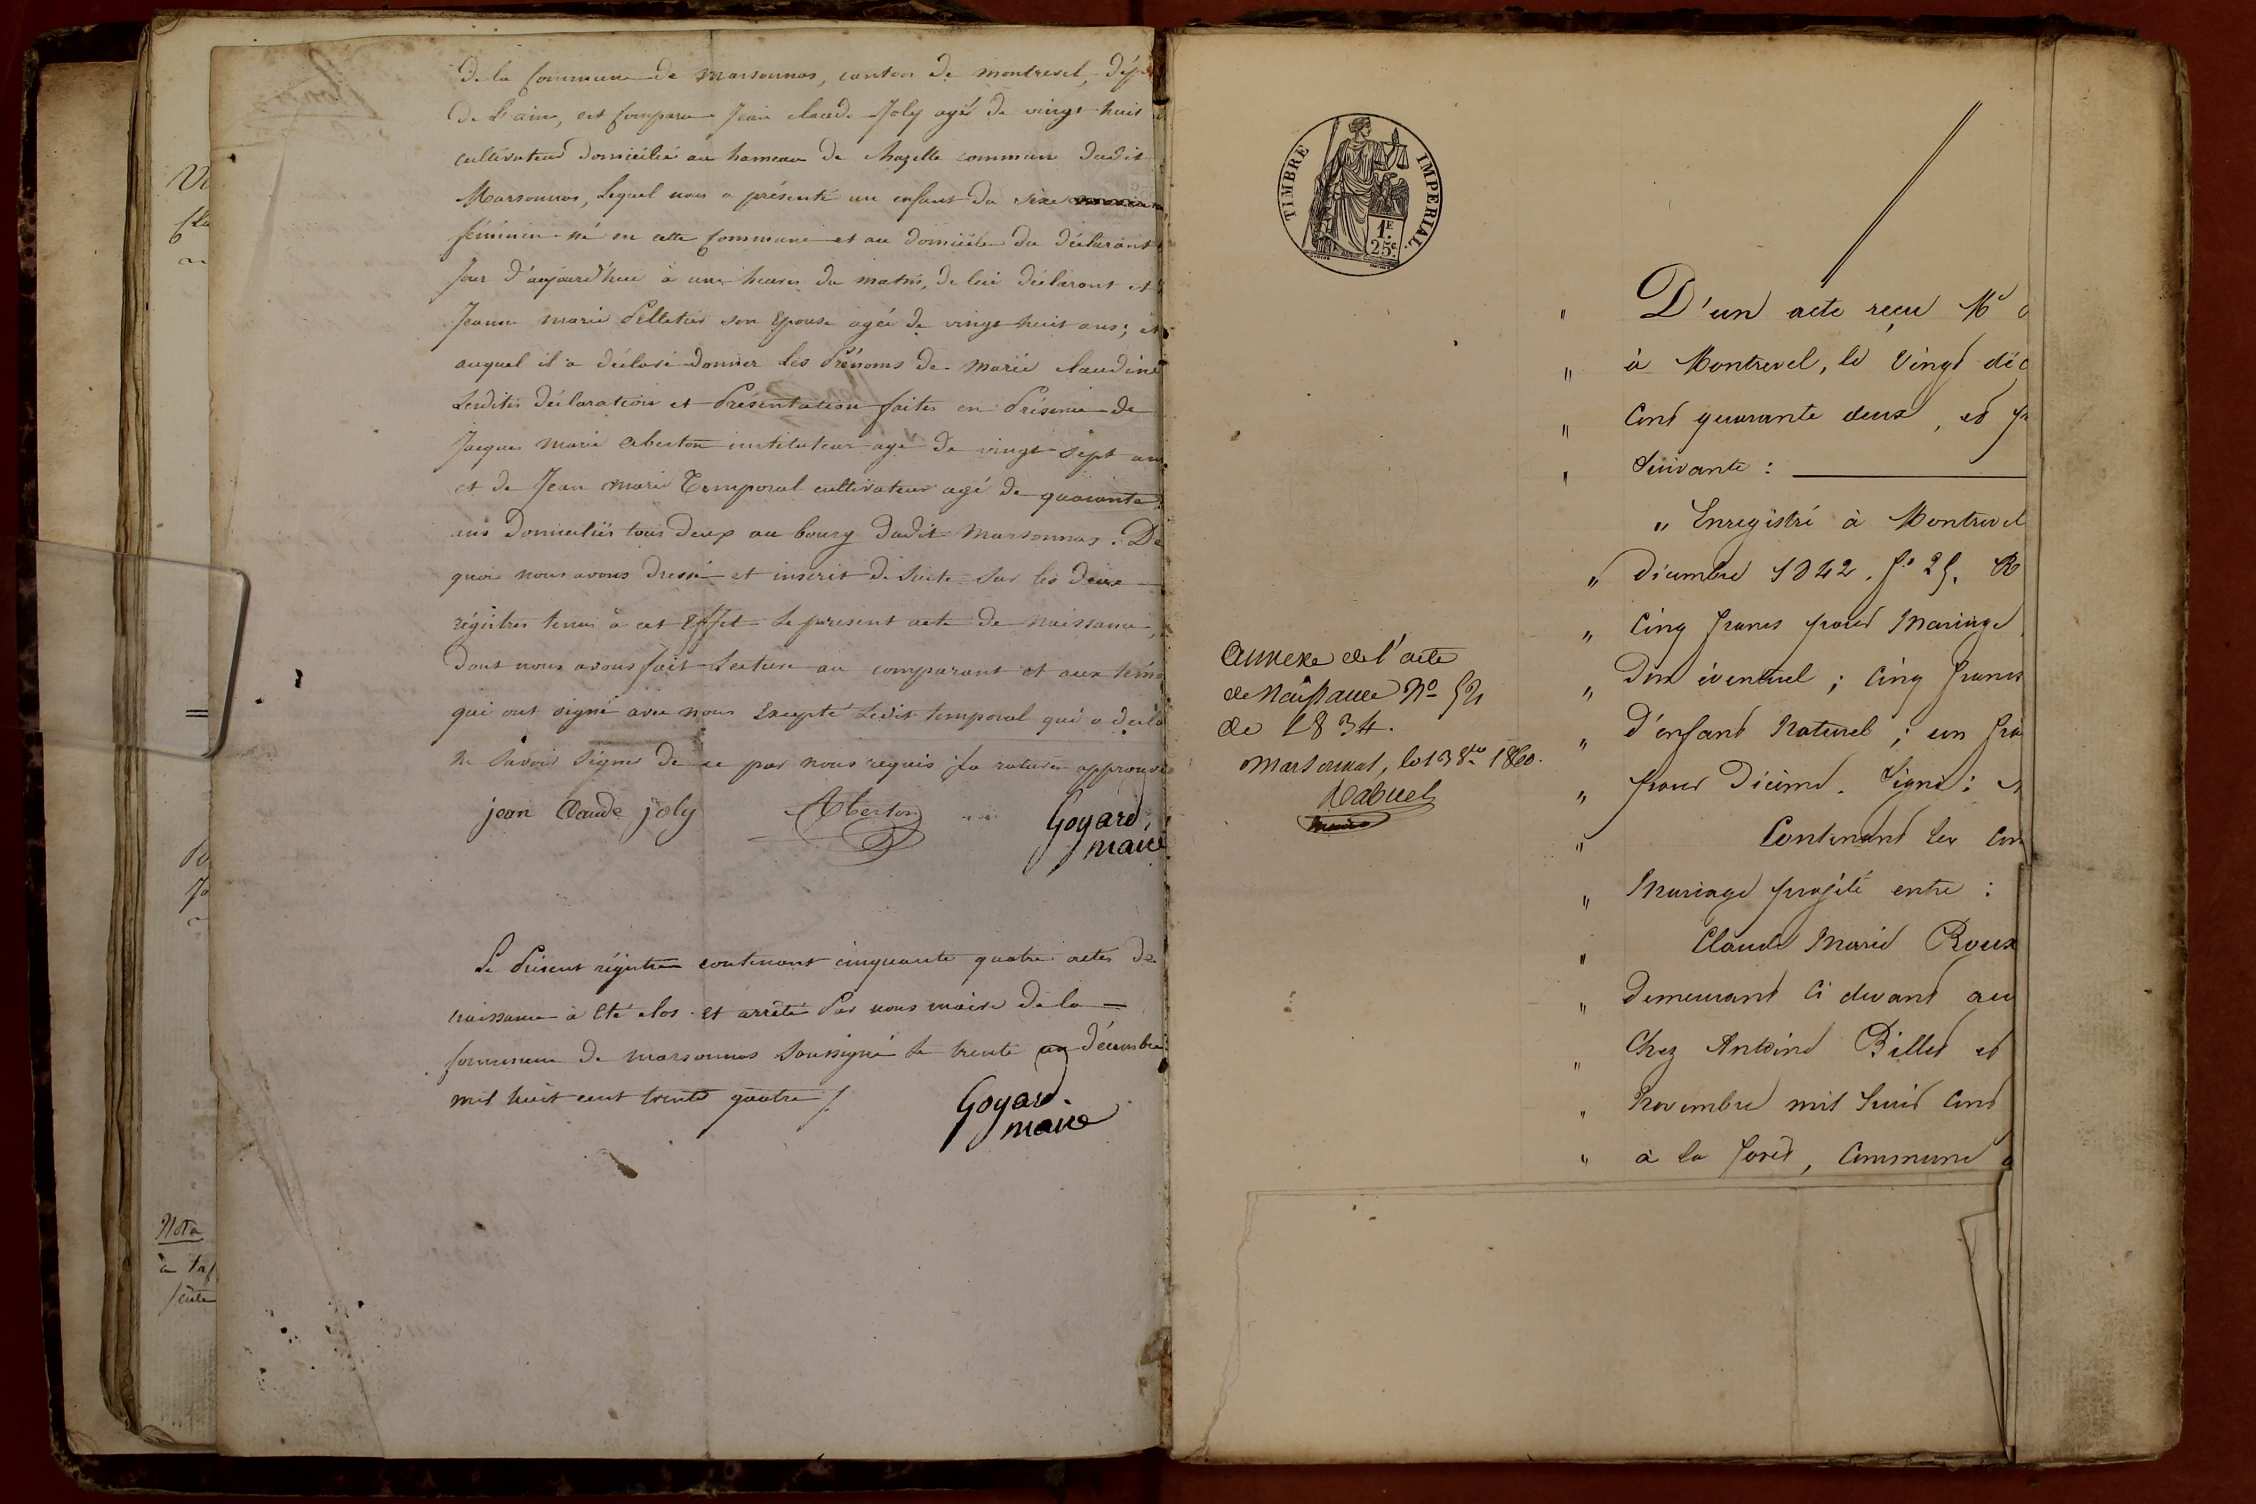 de la Commune de Marsonnas, canton de Montrevel, dép
de l'ain, est Comparu Jean claude Joly agé de vingt huit
cultivateur domicilié au hameau de Chazelle commune dudit
Marsonnas, lequel nous a présenté un enfant du sexe
féminin né en cette Commune et au domicile du déclarant
jour d'aujourd'hui à une heure du matin, de lui déclarant et
Jeanne marie Pelletier son Epouse agée de vingt huit ans; et
auquel il a déclaré donner les Prénoms de marie claudine
Lesdites déclaration et Présentation faites en Présence de
Jacques marie Aberton instituteur agé de vingt sept ans
et de Jean marie Temporal cultivateur agé de quarante
ans domiciliés tous deux au bourg dudit Marsonnas. De
quoi nous avons dressé et inscrit de suite sur les deux
régistres tenus à cet Effet le présent acte de naissance,
dont nous avons fait lecture au comparant et aux témo
qui ont signé avec nous Excepté ledit temporal qui a décla
ne savoir signer de ce par nous requis la rature approuvée
jean Claude joly Aberton Goyard,
maire
Le Présent régistre contenant cinquante quatre actes de
naissance à Eté clos et arrêté Par nous maire de la
Commune de marsonnas Soussigné le trente un décembre
mil huit cent trente quatre /.
Goyard.
maire
Nota
TIMBRE IMPERIAL.
1F
25c.
annexe de l'acte
de Naissance No 52
de 1834.
Marsonnas, le 13 8bre 1860.
Rabuel
maire
" D'un acte reçu Me
" à Montrevel, le Vingt déc
" Cent quarante deux, et
" Suivante :
" Enregistré à Montrevel
" Décembre 1842. fo 25. R
" Cinq francs pour Mariage
" Don éventuel ; Cinq francs
" D'enfant Naturel ; un fra
" pour Décime. Signé :
" Contenant les Con
" Mariage projeté entre :
" Claude Marie Roux
" Demeurant Ci devant au
" Chez Antoine Billet et
" Novembre mil huit Cent
" à la forêt, Commune